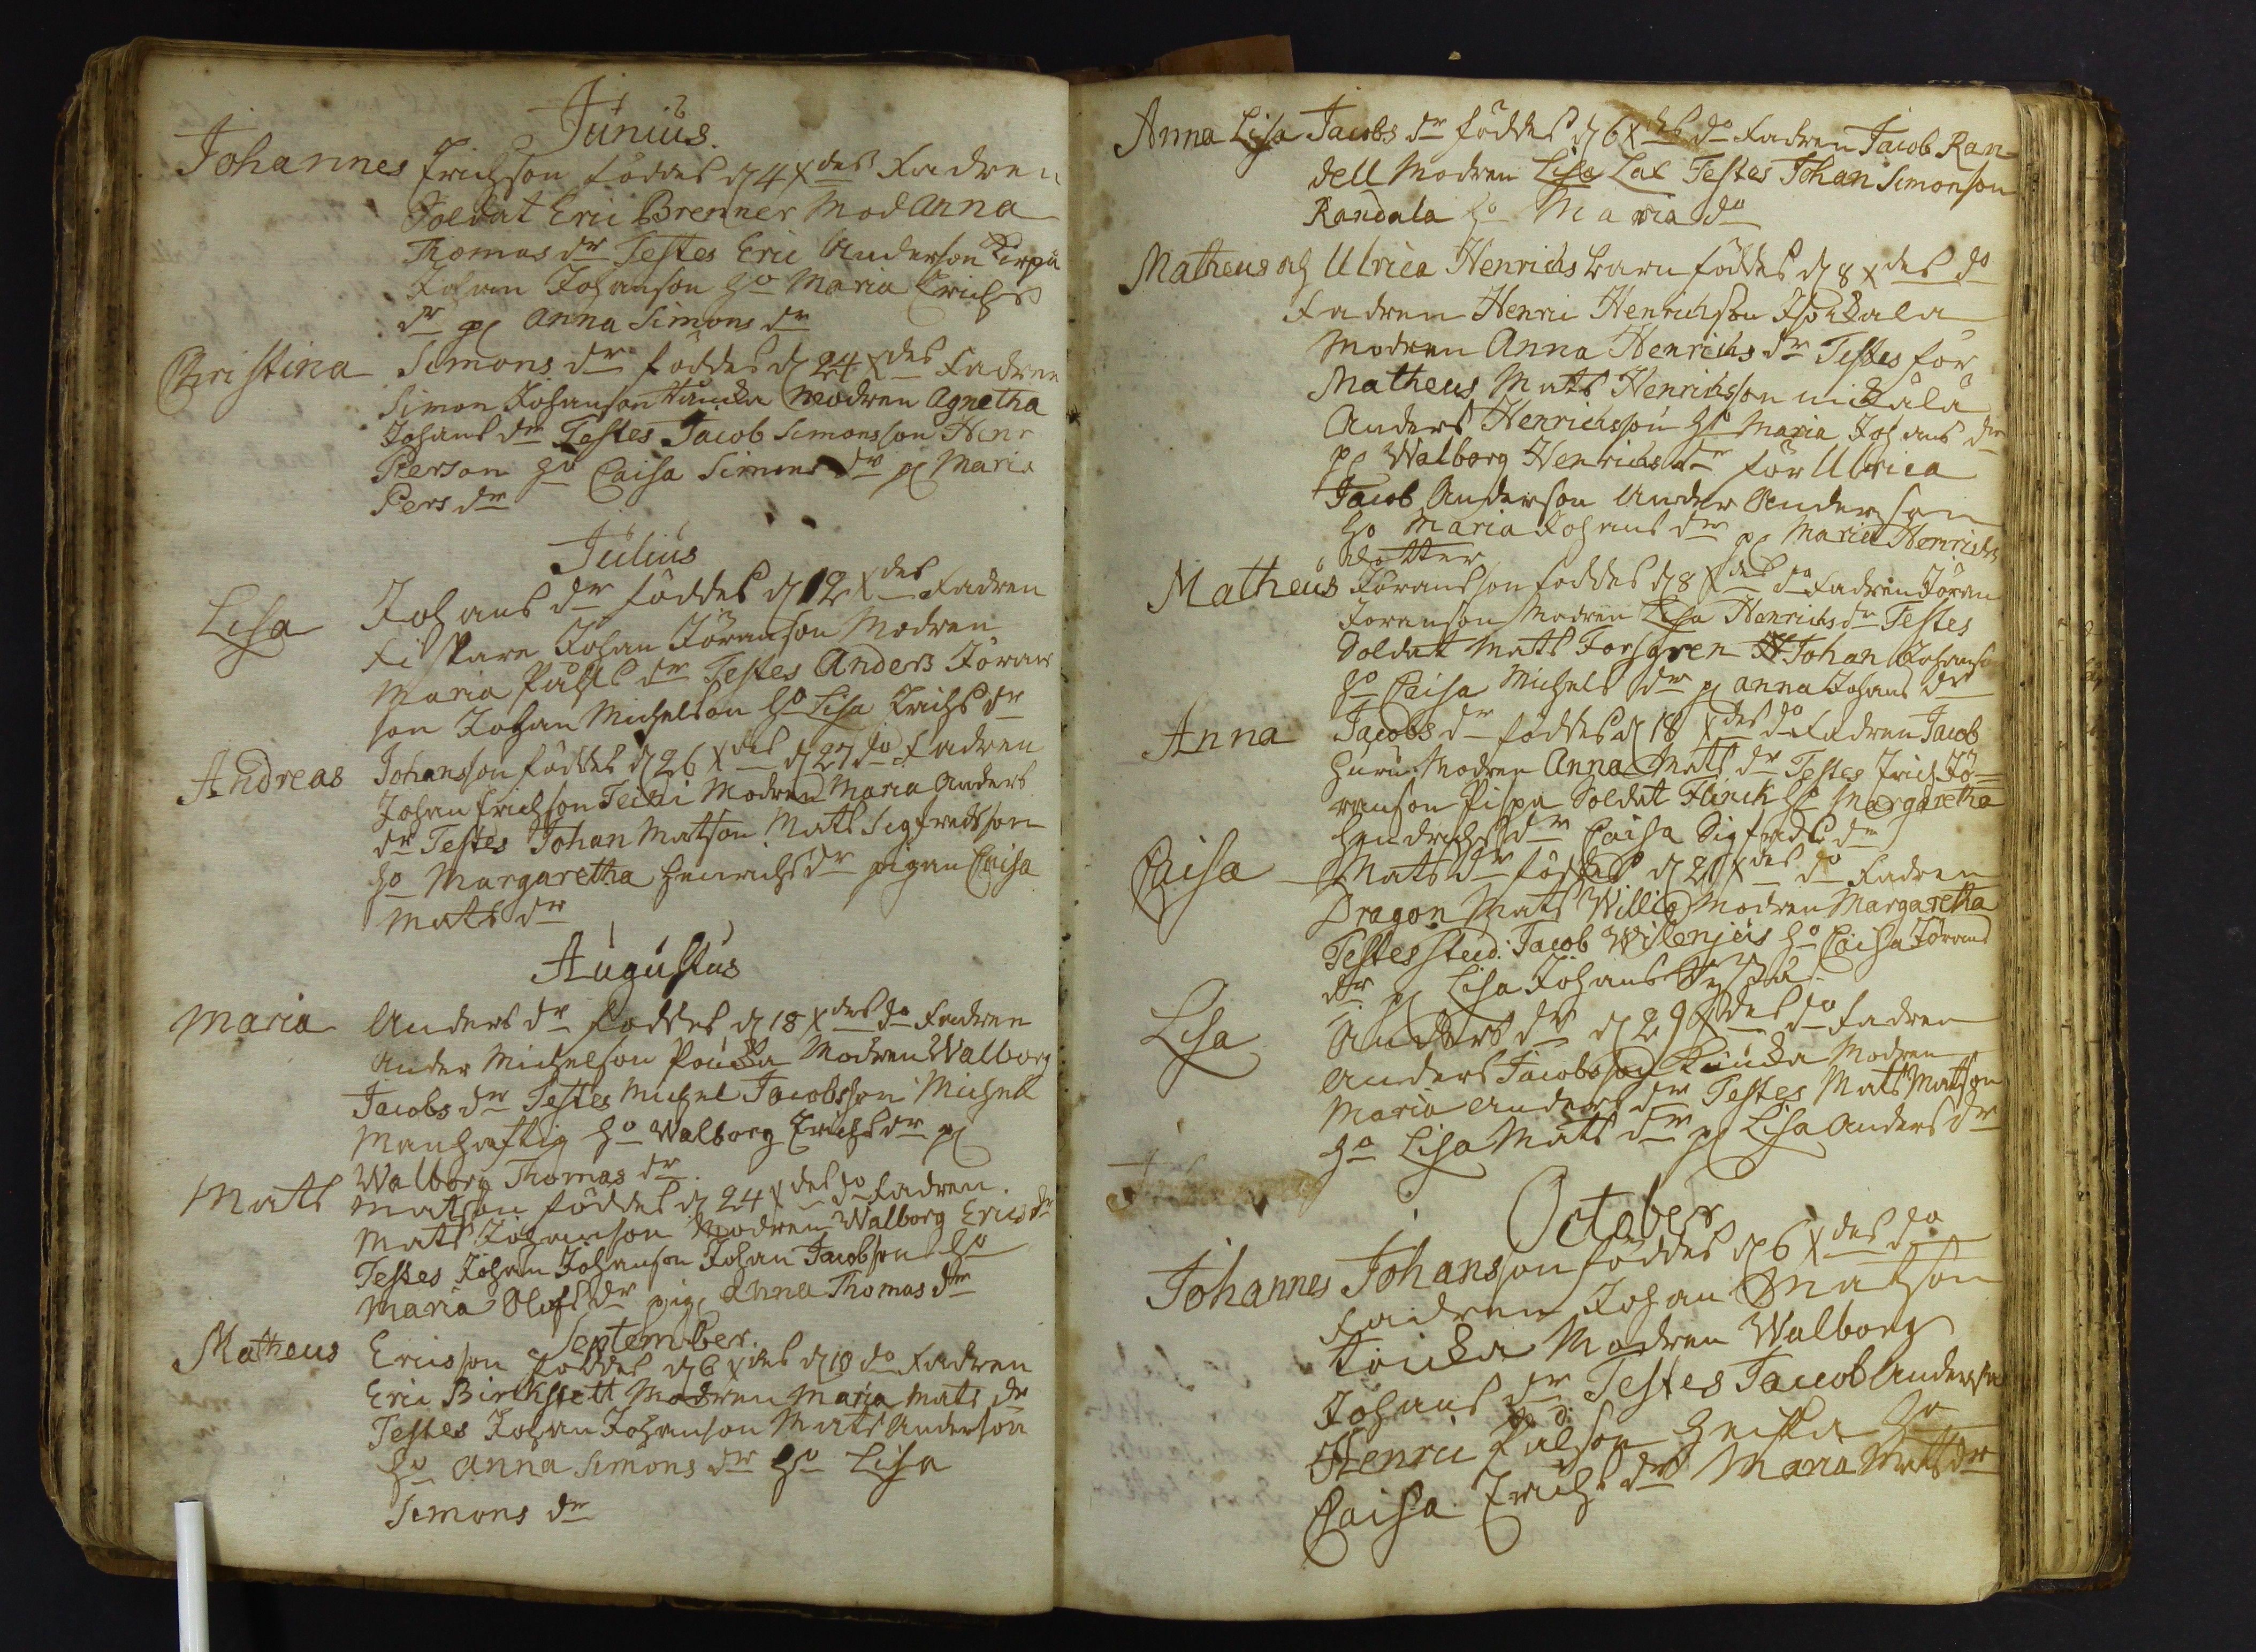 Junius.
Johannes Erichson föddes d 4 Xdes Fadren
Soldat Eric Brenner Mod Anna
Thomas dr Testes Eric Anderson Kirpu
Johan Johanson ho Maria Erichs
dr pl Anna Simons dr
Christina Simons dr föddes d 24 Xdes Fadren
Simon Johanson Modren Agnetha
Johans dr Testes Jacob Simonsson Henr
Person ho Caisa Simons dr pl Maria
Pers dr
Julius
Lisa Johans dr föddes d 12 Xdes Fadren
Fiskare Johan Jöranson Modren
Maria Påhls dr Testes Anders Jöran
son Johan Michelson ho Lisa Erichs dr
Andreas Johansson föddes d 26 Xdes d 27 do Fadren
Johan Erichson Teini Modren Maria Anders
dr Testes Johan Matson Mats Sigfredsson
ho Margaretha Henrichs dr pigan Caisa
Mats dr
Augustus
Maria Anders dr föddes d 18 Xdes do Fadren
Ander Michelson Pouka Modren Walborg
Jacobs dr Testes Michel Jacobsson Michel
Manhaftig ho Walborg Erichs dr pl
Walborg Thomas dr
Mats Matson föddes d 24 Xdes do Fadren
Mats Johanson Modren Walborg Erics dr
Testes Johan Johanson Johan Jacobson ho
Maria Olofs dr pig. Anna Thomas dr
September.
Matheus Ericsson föddes d 6 Xdes d 10 do Fadren
Eric Birkstett Modren Maria Mats dr
Testes Johan Johanson Mats Anderson
ho Anna Simons dr ho Lisa
Simons dr
Anna Lisa Jacobs dr föddes d 6 Xdes do Fadren Jacob Ran
dell Modren Lisa Lax Testes Johan Simonson
Randala ho Maria do
Matheus och Ulrica Henrichs barn föddes d 8 Xdes do
Fadren Henric Henrichson
Modren Anna Henrichs dr Testes för
Matheus Mats Henrichsson
Anders Henrichsson ho Maria Johans dr
pl Walborg Henrichs dr för Ulrica
Jacob Anderson Ander Anderson
ho Maria Johans dr pl Maria Henrichs
dotter
Matheus Jöransson föddes d 8 Xdes do Fadren Jöran
Jöranson Modren Lisa Henrichs dr Testes
Soldat Mats Forsgren Johan Johanson
ho Caisa Michels dr pl Anna Johans dr
Anna Jacobs dr föddes d 18 Xdes do Fadren Jacob
Huru Modren Anna Mats dr Testes Erich Jö=
ranson Pispa Soldat Flinck ho Margaretha
Hendrichs dr Caisa Sigfreds dr
Caisa Mats dr föddes d 21 Xdes do Fadren
Dragon Mats Willig Modren Margaretha
Testes stud: Jacob Wilenjeis ho Caisa Jörans
dr pl Lisa Johans
Lisa Anders dr d 29 Xdes do Fadren
Anders Jacobsson Modren
Maria Anders dr Testes Mats Matson
ho Lisa Mats dr pl Lisa Anders dr
October
Johannes Johanson föddes d 6 Xdes do
Fadren Johan Matson
Modren Walborg
Johans dr Testes Jacob Anderson
Henric Pålson ho
Caisa Erichs dr Maria Mats dr